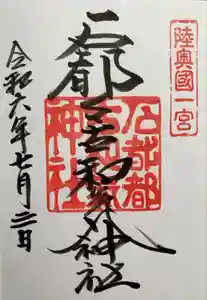 陸奥國一宮
石都々古和気神社
石都都古和氣神社
令和六年七月日